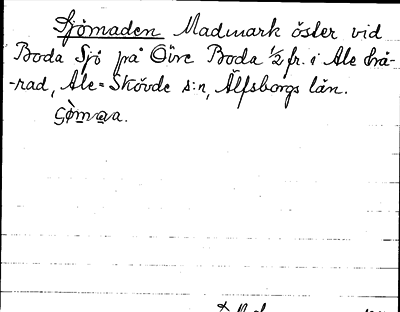 Sjömaden Madmark öster vid
Boda Sjö på Öire Boda 1/2 fr. i Ale hä-
-rad, Ale-Skövde s:n, Älfsborgs län.